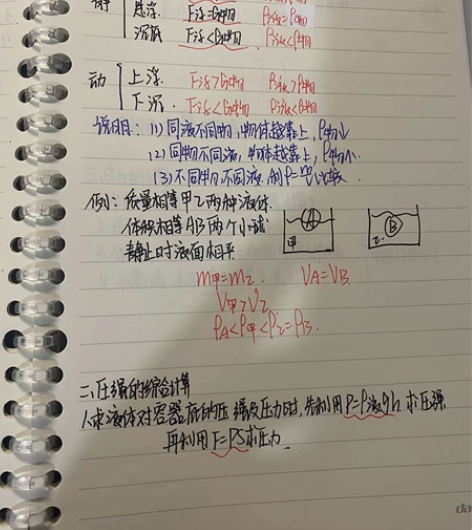 静
悬浮 F浮=G物 ρ液=ρ物
沉底 F浮<G物 ρ液<ρ物
动 上浮 F浮>G物 ρ液>ρ物
下沉 F浮<G物 ρ液<ρ物
说明：(1)同液不同物，物体越靠上，ρ物小
(2)同物不同液，物体越靠上，ρ物小
(3)不同物不同液，利 比较
例：质量相等甲乙两种液体
体积相等AB两个小球
静止时液面相平
甲 A 乙 B
m甲=m乙. VA=VB
V甲>V乙
ρA<ρ甲<ρ乙=ρB.
二、压强的综合计算
1、求液体对容器底的压强及压力时，先利用P=ρ液gh求压强
再利用F=PS求压力
da